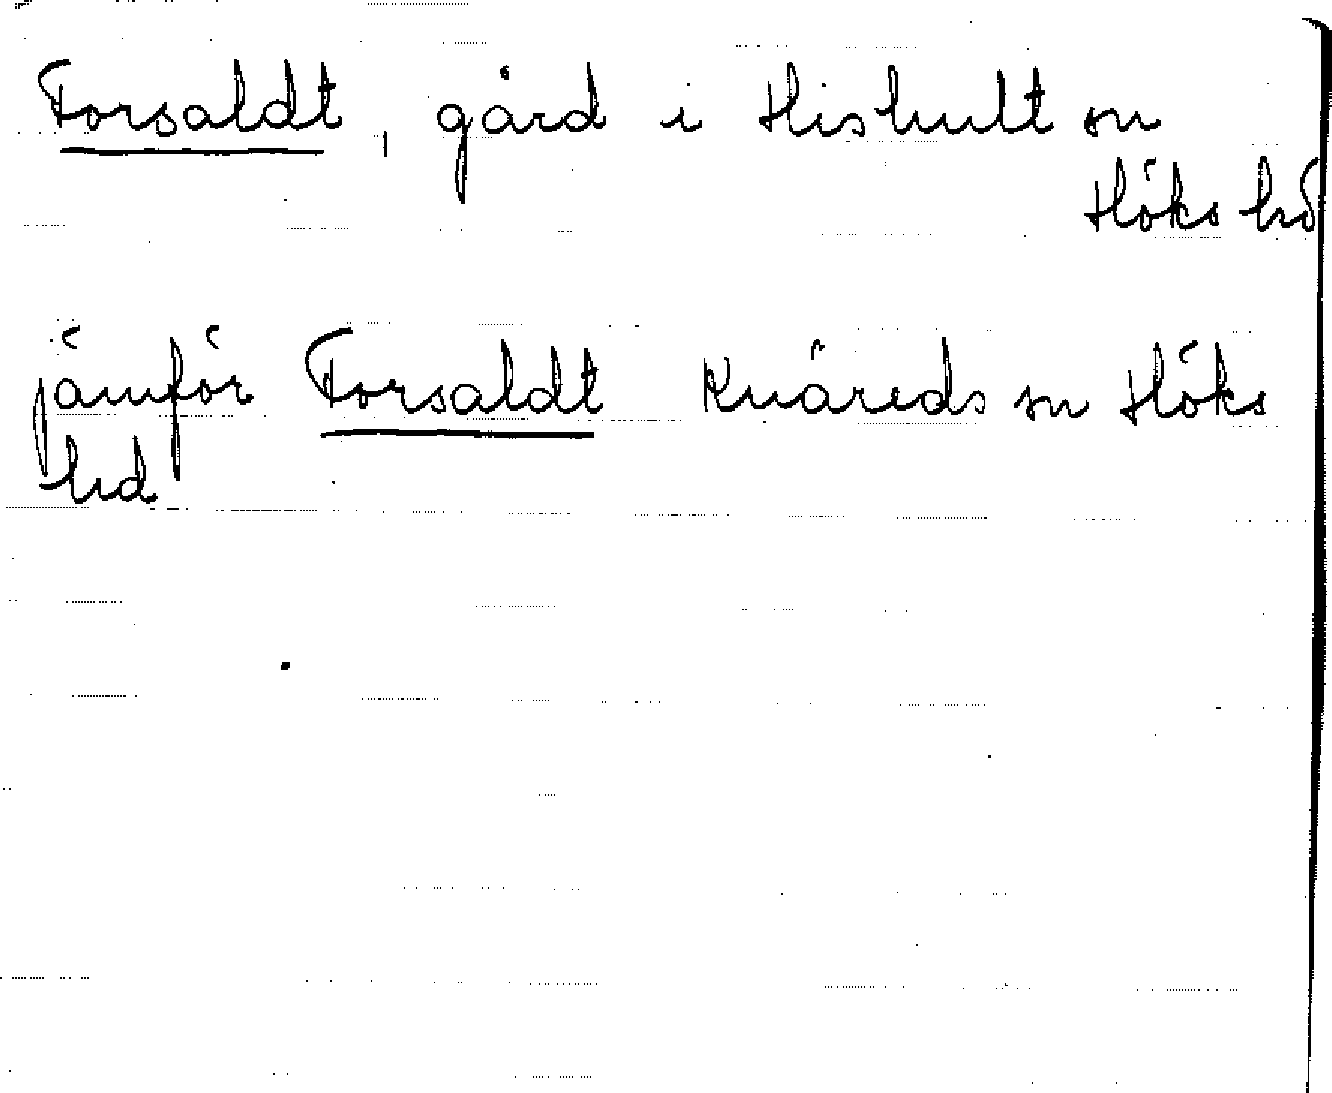 Forsaldt, gård i Hishult sn
Höks hd
jämför Forsaldt Knäreds sn Höks
hd